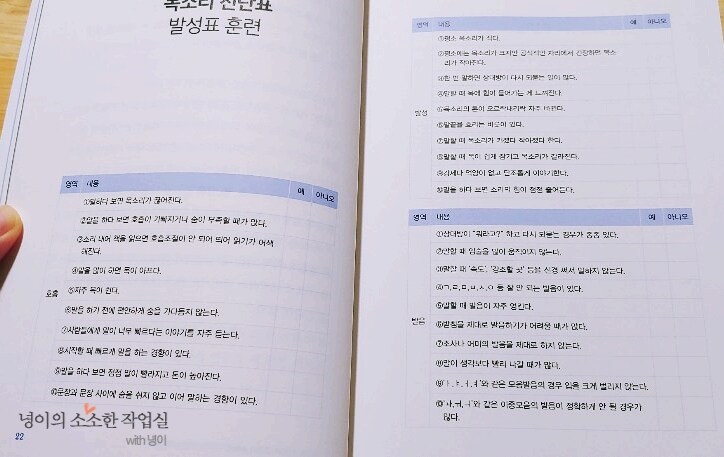 목소리 진단표
발성표 훈련
영역 내용 예 아니오
호흡
①말하다 보면 목소리가 끊어진다.
②말을 하다 보면 호흡이 가빠지거나 숨이 부족할 때가 많다.
③소리 내어 책을 읽으면 호흡조절이 안 되어 띄어 읽기가 어색
해진다.
④말을 많이 하면 목이 아프다.
⑤자주 목이 쉰다.
⑥말을 하기 전에 편안하게 숨을 가다듬지 않는다.
⑦사람들에게 말이 너무 빠르다는 이야기를 자주 듣는다.
⑧시작할 때 빠르게 말을 하는 경향이 있다.
⑨말을 하다 보면 점점 말이 빨라지고 톤이 높아진다.
⑩문장과 문장 사이에 숨을 쉬지 않고 이어 말하는 경향이 있다.
냉이의 소소한 작업실
with 냉이
22
영역 내용 예 아니오
발성
①평소 목소리가 작다.
②평소에는 목소리가 크지만 공식적인 자리에서 긴장하면 목소
리가 작아진다.
③한 번 말하면 상대방이 다시 되묻는 일이 많다.
④말할 때 목에 힘이 들어가는 게 느껴진다.
⑤목소리의 톤이 오르락내리락 자주 바뀐다.
⑥말끝을 흐리는 버릇이 있다.
⑦말할 때 목소리가 커졌다 작아졌다 한다.
⑧말할 때 목이 쉽게 잠기고 목소리가 갈라진다.
⑨강세나 억양이 없고 단조롭게 이야기한다.
⑩말을 하다 보면 소리의 힘이 점점 줄어든다.
영역 내용 예 아니오
발음
①상대방이 "뭐라고?" 하고 다시 되묻는 경우가 종종 있다.
②말할 때 입술을 많이 움직이지 않는다.
③말할 때 '속도', '강조할 곳' 등을 신경 써서 말하지 않는다.
④ㄱ, ㄹ, ㅁ, ㅂ, ㅅ, ㅇ 등 잘 안 되는 발음이 있다.
⑤말할 때 발음이 자주 엉킨다.
⑥받침을 제대로 발음하기가 어려울 때가 많다.
⑦조사나 어미의 발음을 제대로 하지 않는다.
⑧말이 생각보다 빨리 나갈 때가 많다.
⑨'ㅏ, ㅑ, ㅓ, ㅕ'와 같은 모음발음의 경우 입을 크게 벌리지 않는다.
⑩'ㅘ, ㅝ, ㅚ'와 같은 이중모음의 발음이 정확하게 안 될 경우가
많다.